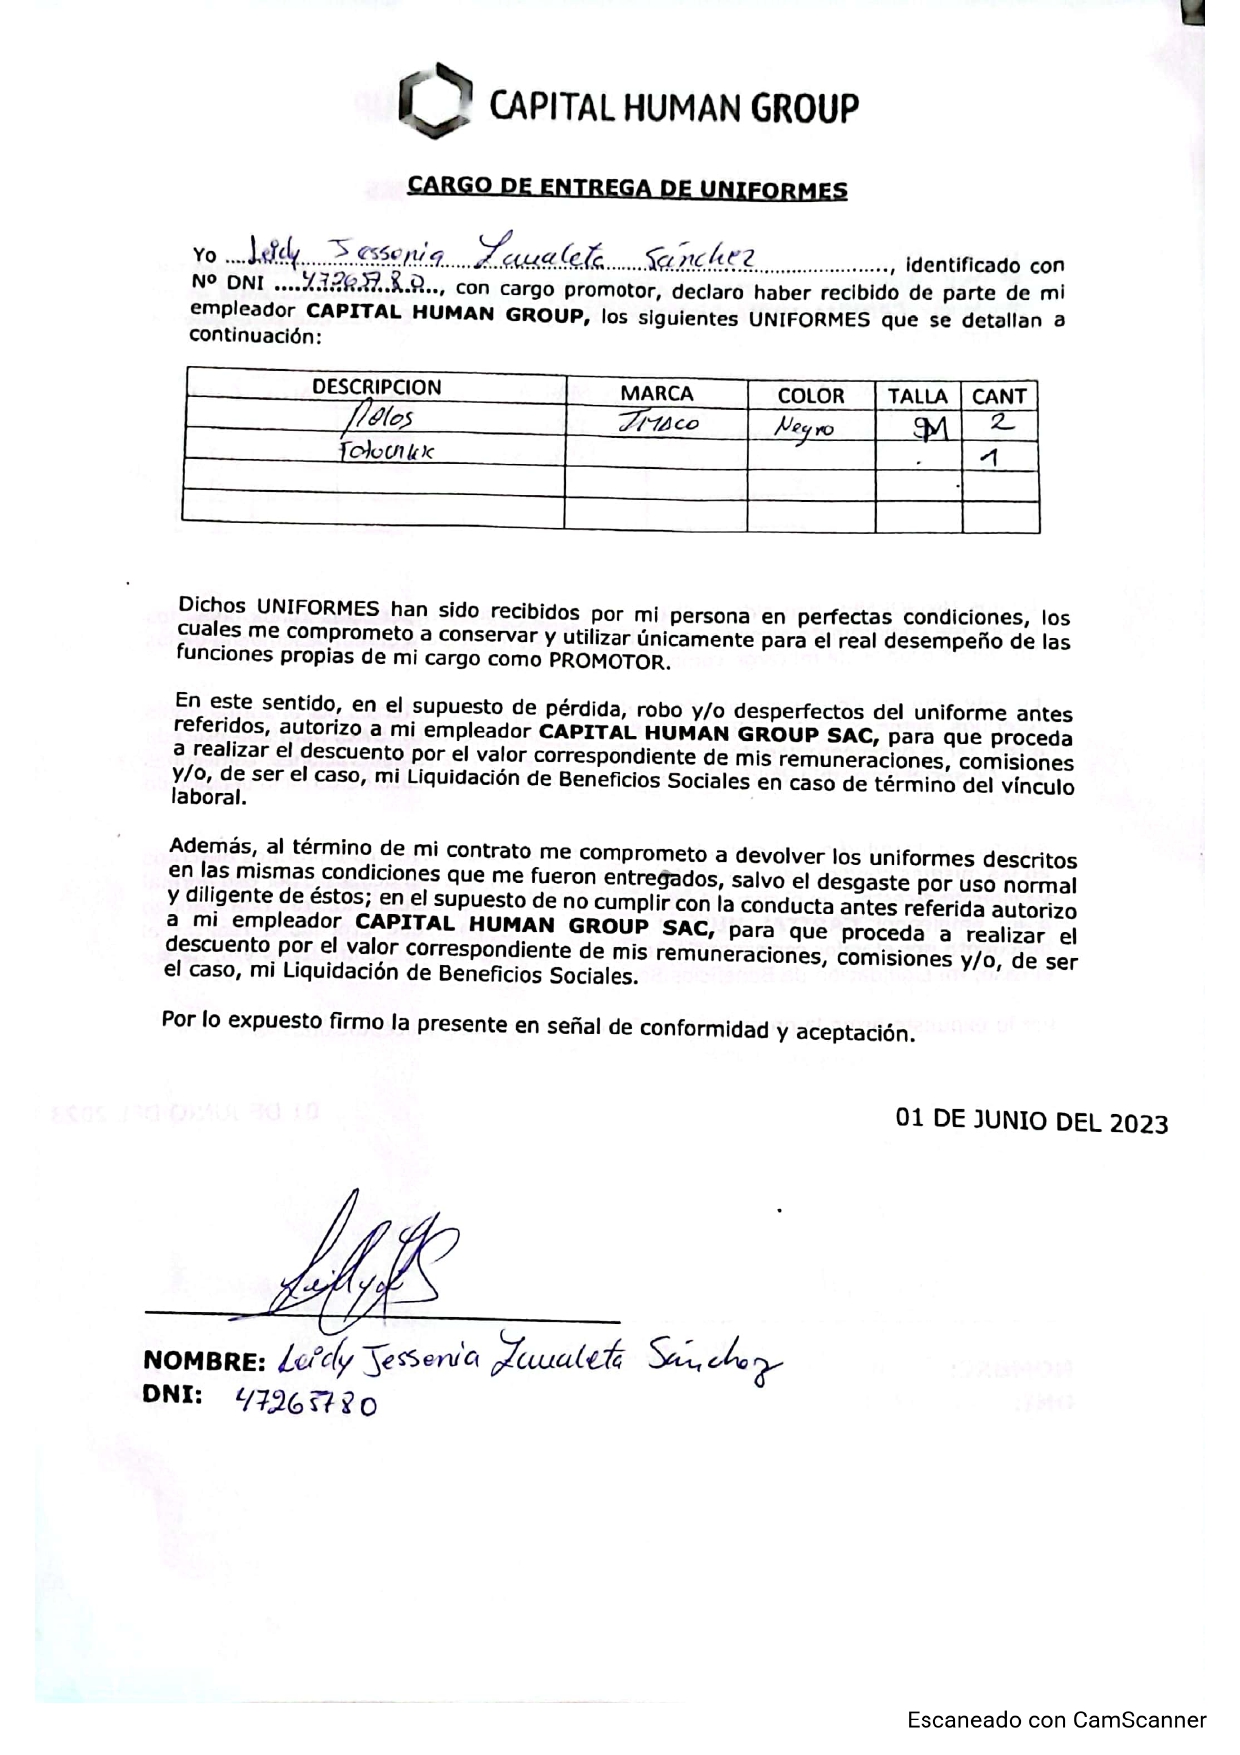 CAPITAL HUMAN GROUP
CARGO DE ENTREGA DE UNIFORMES
Yo ....Leidy Jessenia Zavaleta Sánchez........................., identificado con
Nº DNI ....47265780..., con cargo promotor, declaro haber recibido de parte de mi
empleador CAPITAL HUMAN GROUP, los siguientes UNIFORMES que se detallan a
continuación:
DESCRIPCION MARCA COLOR TALLA CANT
Polos Negro M 2
Fotocheck 1
Dichos UNIFORMES han sido recibidos por mi persona en perfectas condiciones, los
cuales me comprometo a conservar y utilizar únicamente para el real desempeño de las
funciones propias de mi cargo como PROMOTOR.
En este sentido, en el supuesto de pérdida, robo y/o desperfectos del uniforme antes
referidos, autorizo a mi empleador CAPITAL HUMAN GROUP SAC, para que proceda
a realizar el descuento por el valor correspondiente de mis remuneraciones, comisiones
y/o, de ser el caso, mi Liquidación de Beneficios Sociales en caso de término del vínculo
laboral.
Además, al término de mi contrato me comprometo a devolver los uniformes descritos
en las mismas condiciones que me fueron entregados, salvo el desgaste por uso normal
y diligente de éstos; en el supuesto de no cumplir con la conducta antes referida autorizo
a mi empleador CAPITAL HUMAN GROUP SAC, para que proceda a realizar el
descuento por el valor correspondiente de mis remuneraciones, comisiones y/o, de ser
el caso, mi Liquidación de Beneficios Sociales.
Por lo expuesto firmo la presente en señal de conformidad y aceptación.
01 DE JUNIO DEL 2023
NOMBRE: Leidy Jessenia Zavaleta Sánchez
DNI: 47265780
Escaneado con CamScanner